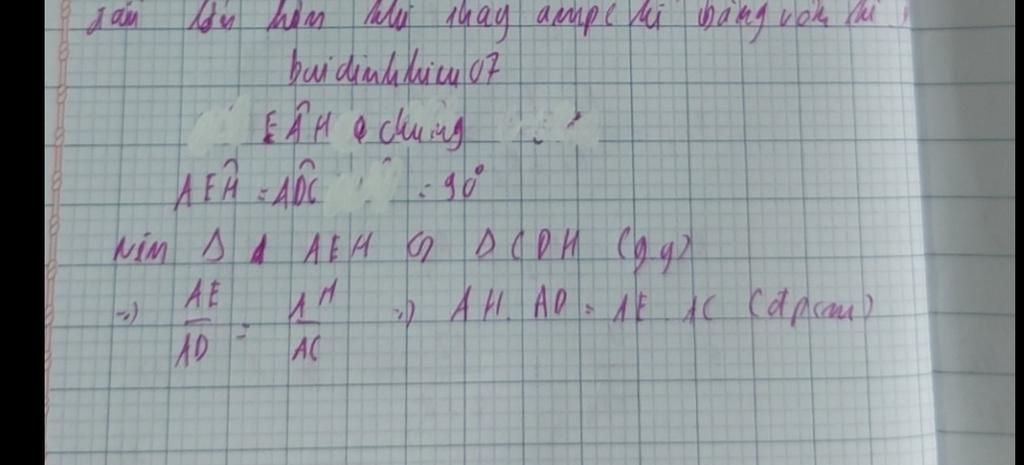 hơn khi thay ampe kế bằng vôn kế
buidinhhieu07
EÂH chung
AEĤ = AD̂C = 90°
Nên Δ AEH ∽ Δ CDH (g g)
=> AE/AD = AH/AC => AH. AD = AE. AC (đpcm)